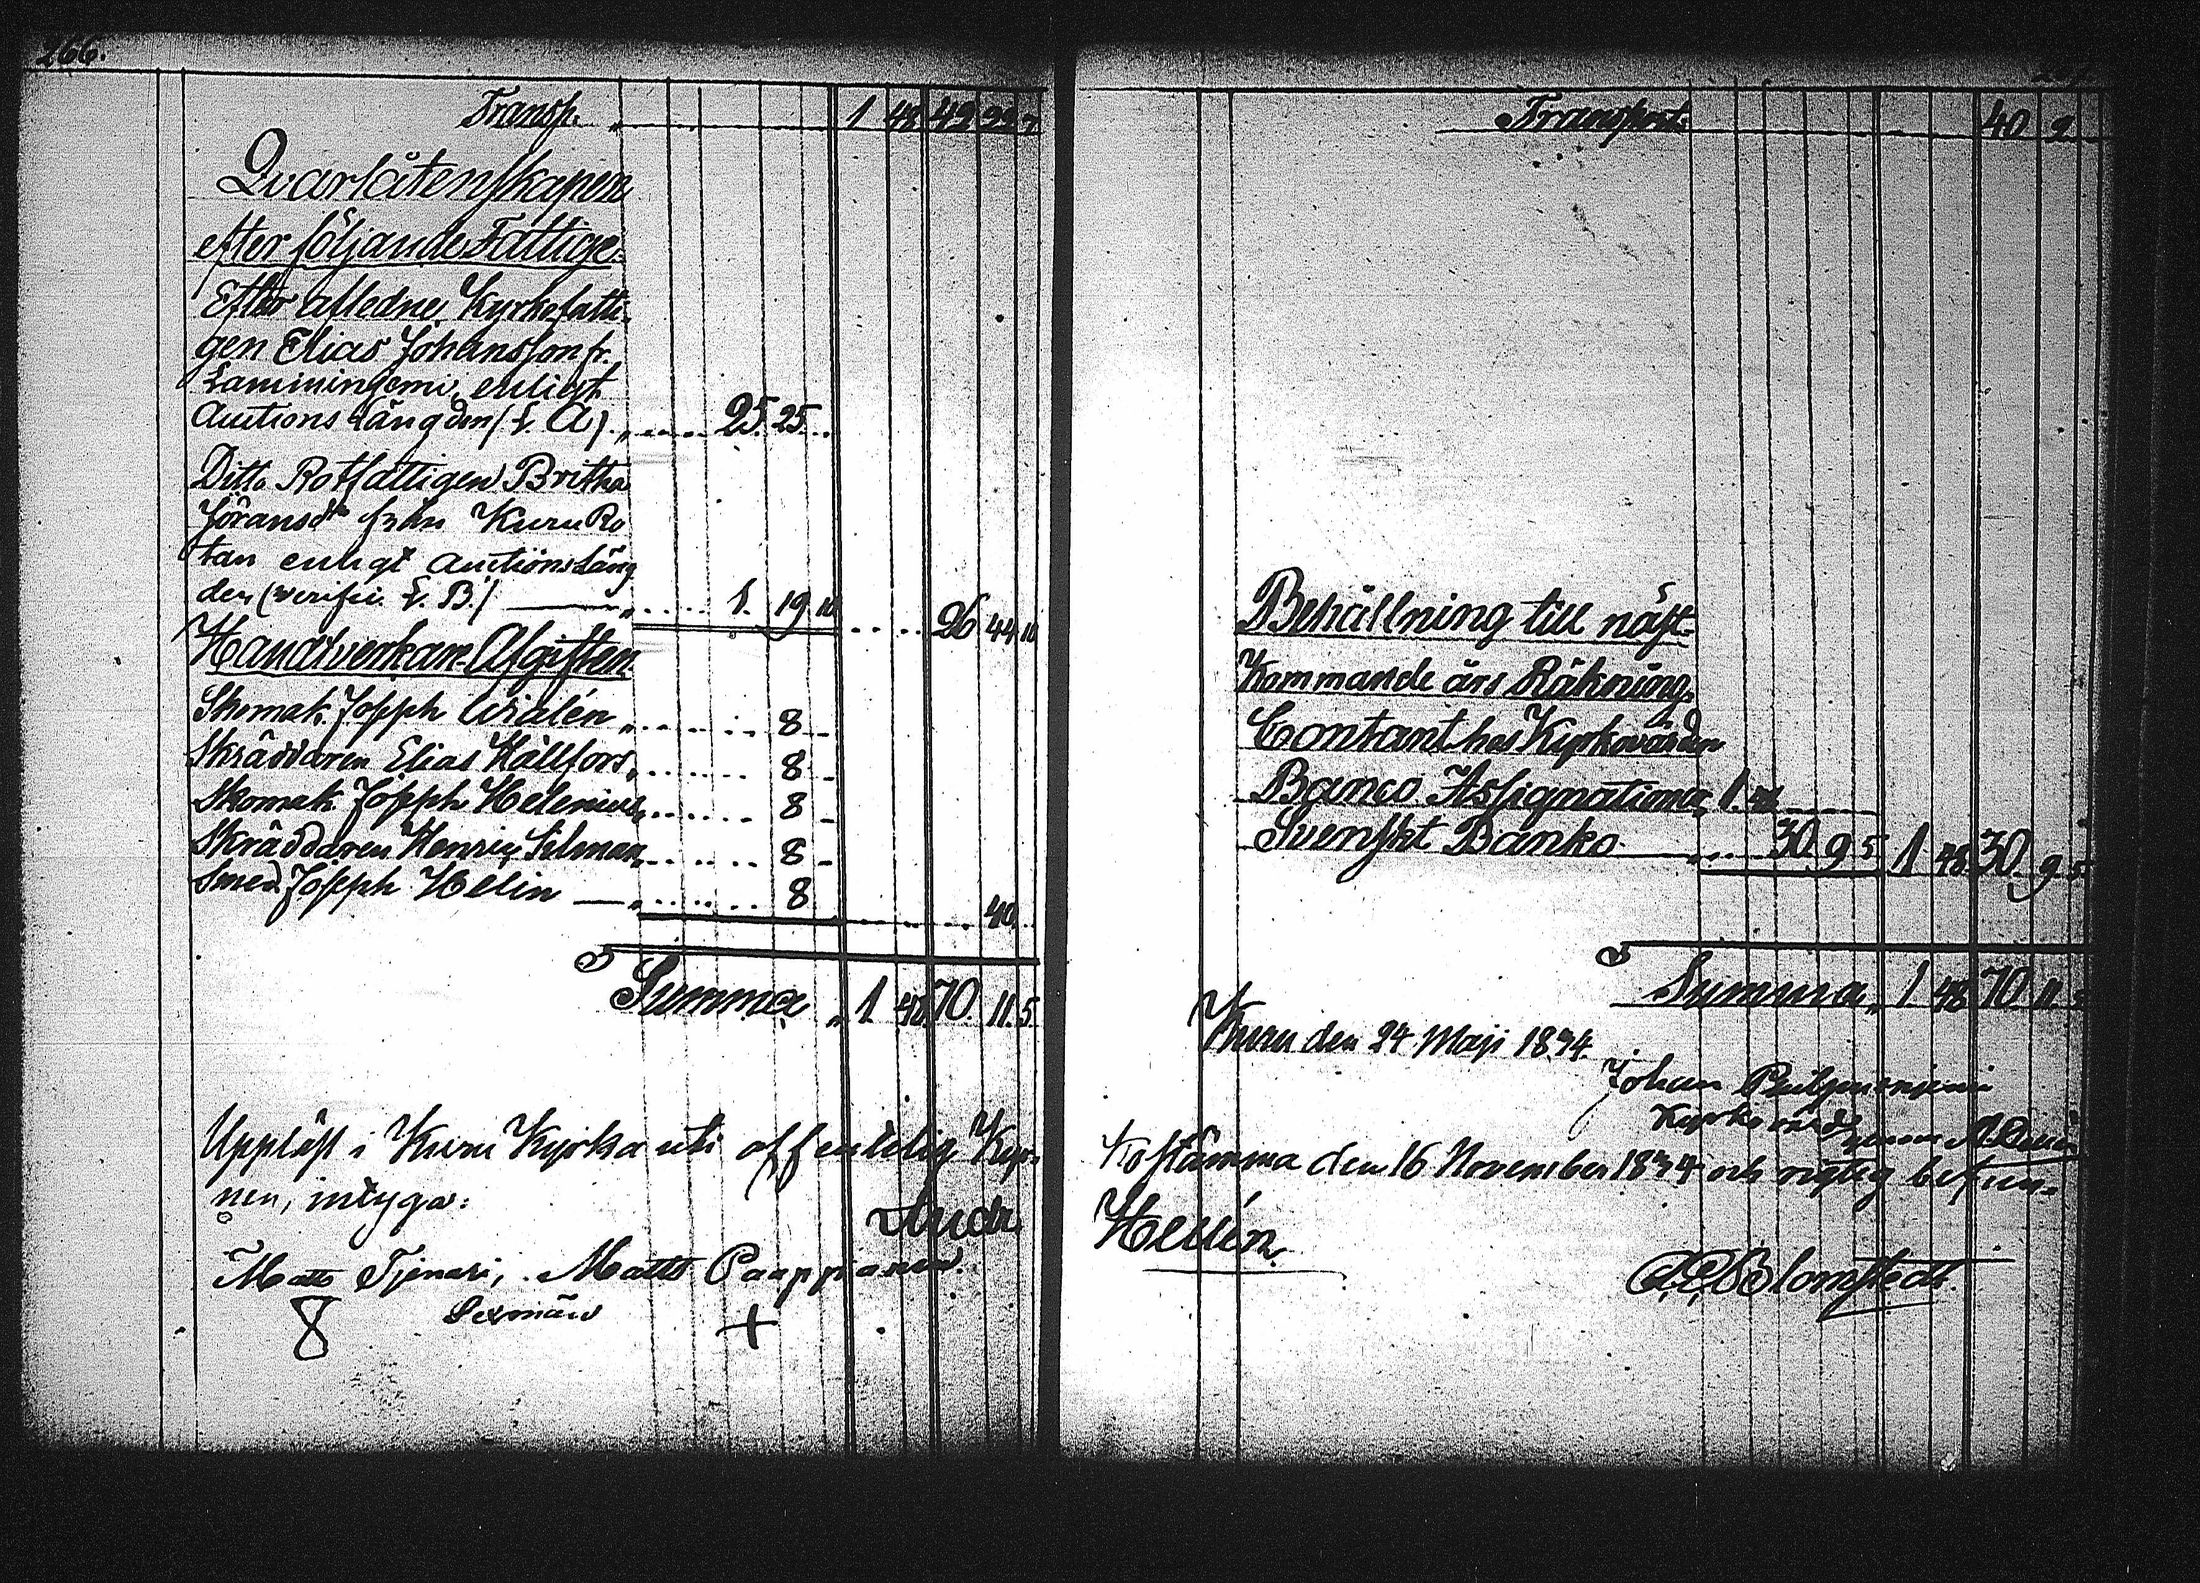 266.
Transp. 1 48 42 32 7
Qvarlåtenskapen
efter följande Fattige.
Efter afledne Kyrkofatti-
gen Elias Johansson fr.
enligt
Auctions Längden (L. A) 25. 25.
Ditto Rotfattigen Britha
Jöransdr från Kuru Ro
tan enligt Auctions Läng
den (verific. L. B.) 1. 19 10 26 44 10
Handtverkare Afgiften.
Skomak. Joseph Widlén 8
Skräddaren Elias Hällfors 8
Skomak. Joseph Helenius 8
Skräddaren Henric Silman 8
Smed. Joseph Helin 8
40.
Summa 1. 48. 70. 11. 5.
Uppläst i Kuru Kyrka uti offentelig Kyr-
nen, intyga:
Andr
Matts Tjenari, Matts Paappanen.
Sexmän
8 +
Transport. 40 2
Behållning till näst-
Kommande års Räkning.
Contant hos Kyrkovärden
Banco Assignationer 1. 48
Svenskt Banko 30 9 5 1 48 30 9 5
Summa 1 48 70 11 5
Kuru den 24 Maji 1834.
Johan
Kyrkovärd
kostämma den 16 November 1834 och rigtig befun-
Hellén.
Blomstedt.